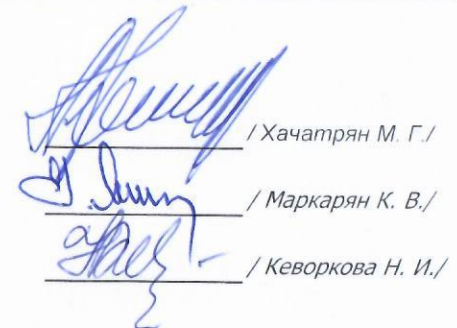 / Хачатрян М. Г./
/ Маркарян К. В./
/ Кеворкова Н. И./